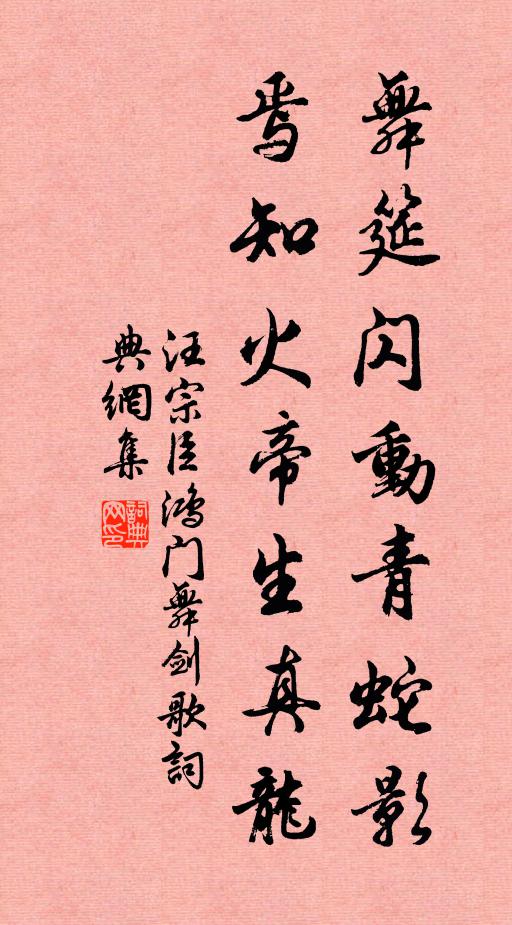 舞筵閃動青蛇影
焉知火帝生真龍
汪宗臣鴻门舞劍歌詞
典網集
詞典网印